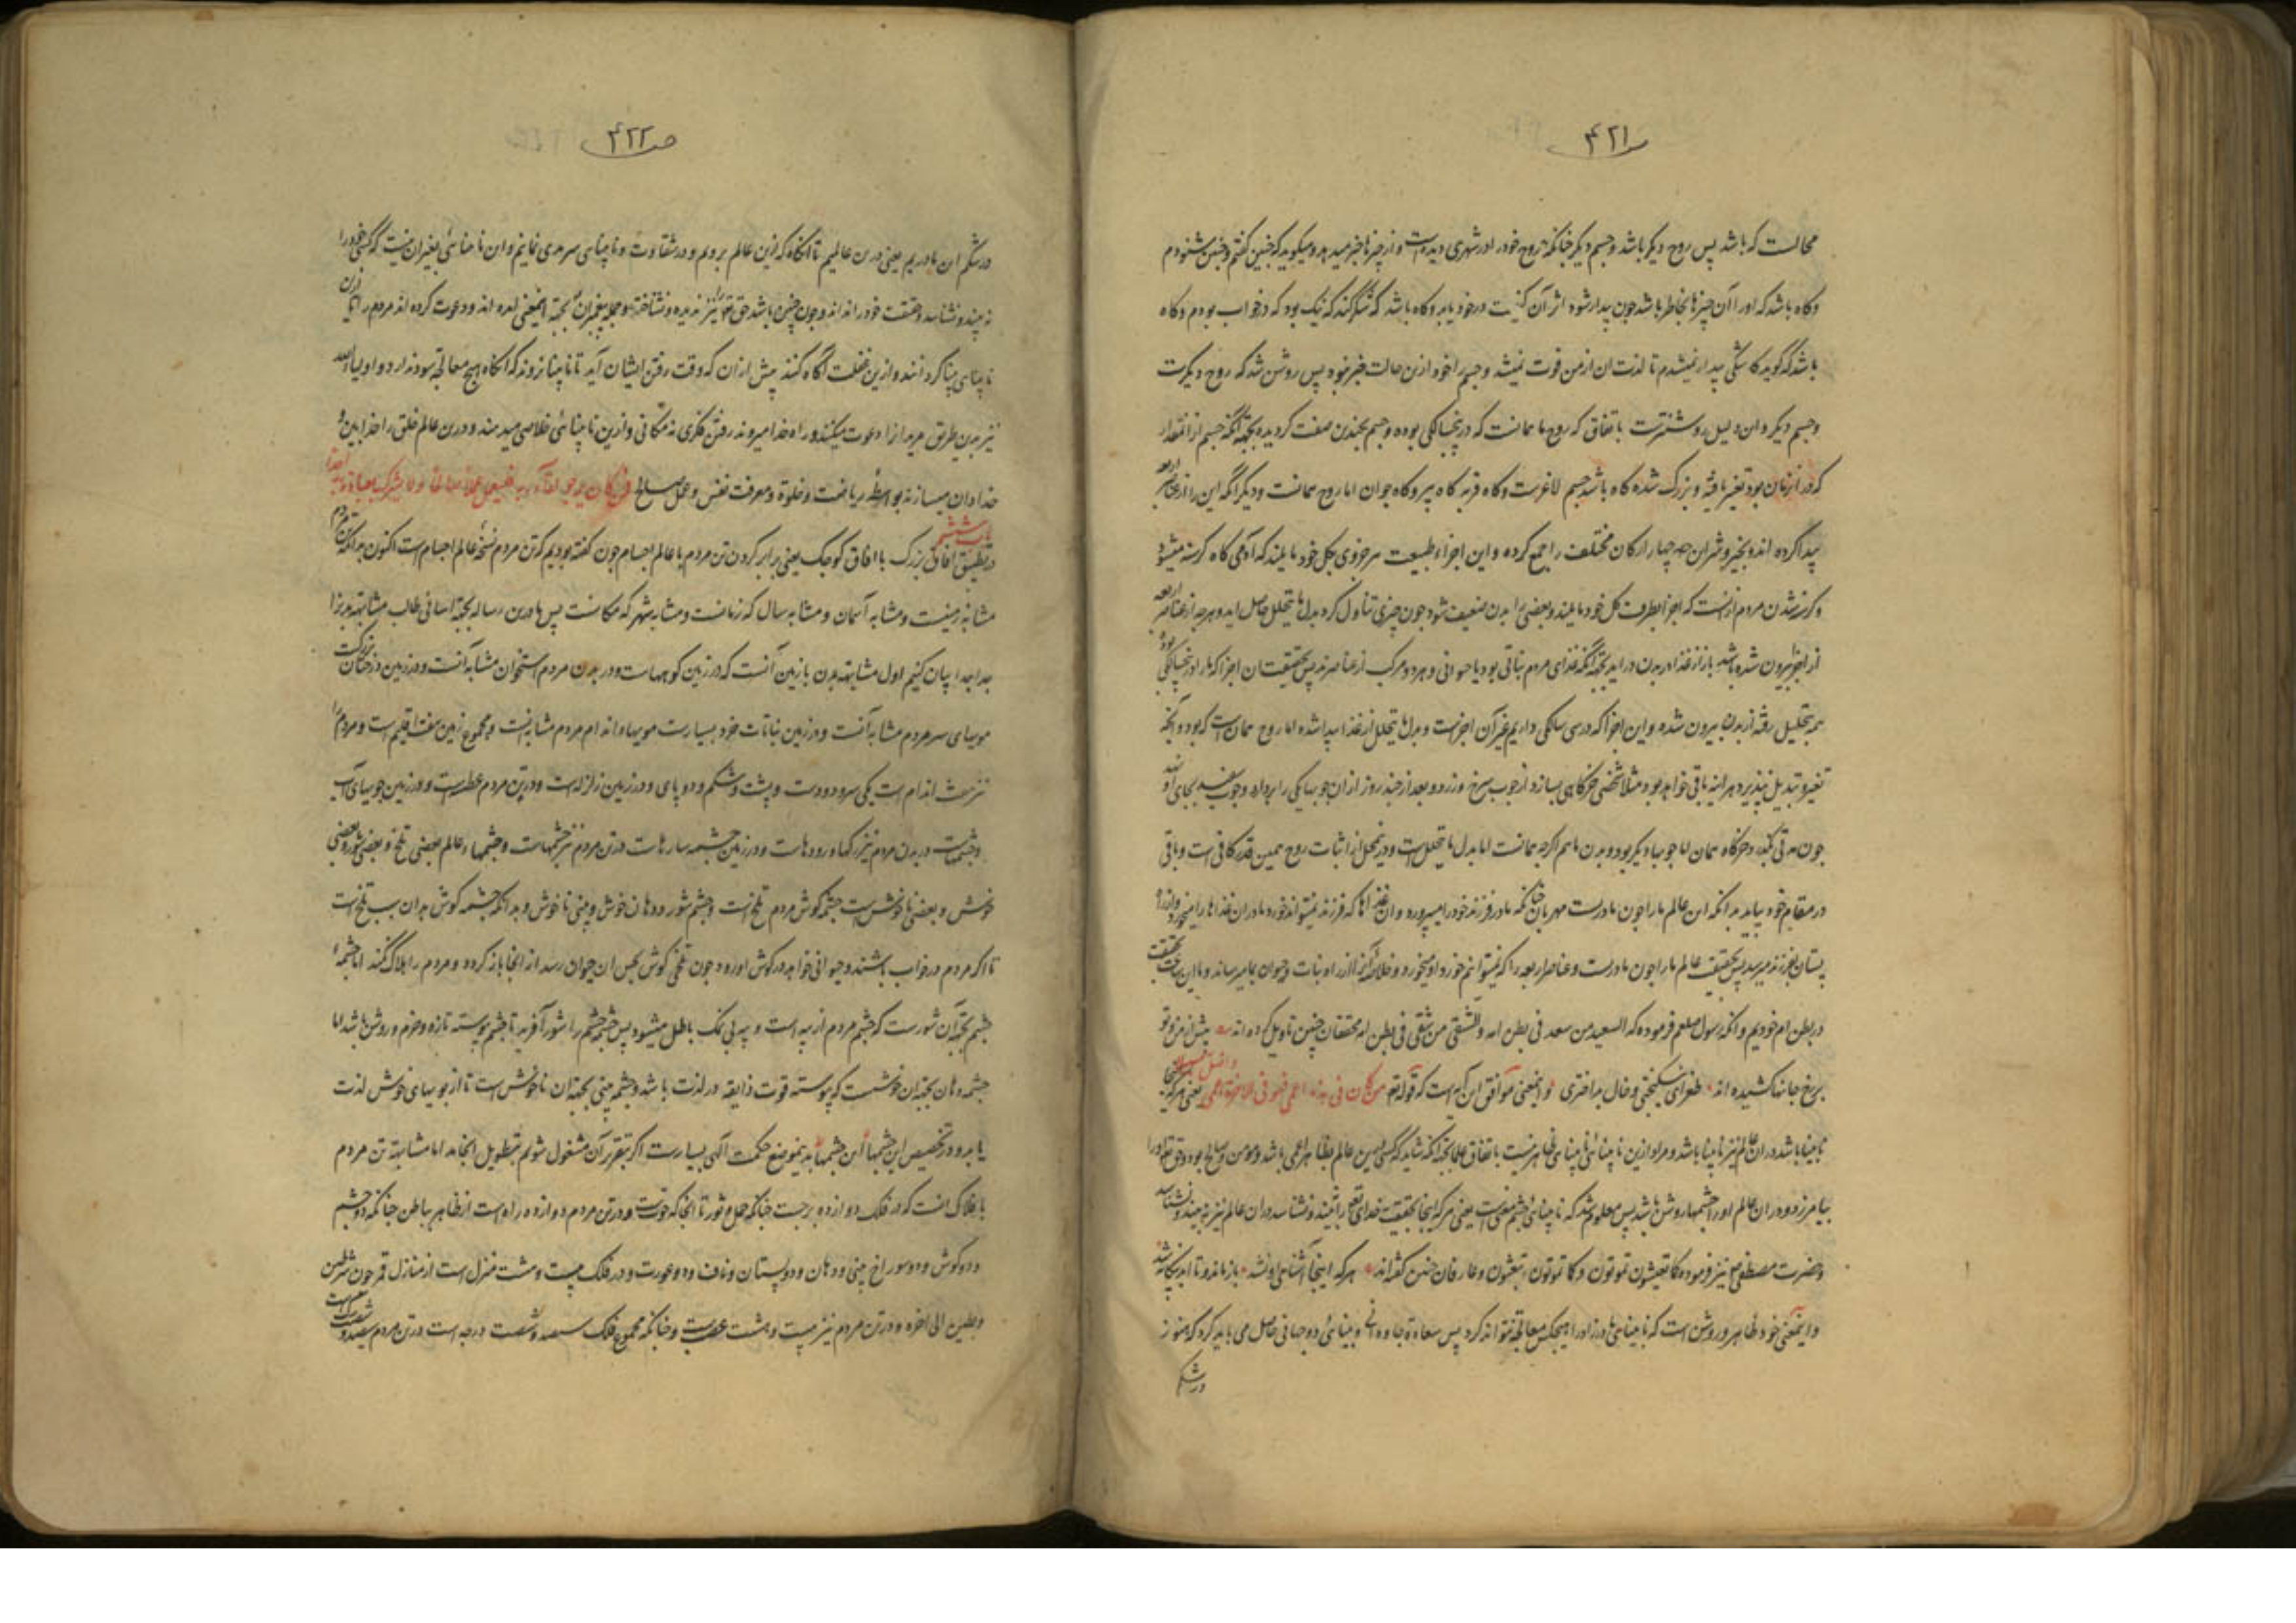 ص۴۲۱
محالست که باشد پس روح دیکر باشد و جسم دیکر چنانکه روح خود را در شهری دیده است و از چیزها خبر میدهد و میکوید که چنین کفتم و چنین شنودم
و کاه باشد که او را آن چیزها بخاطر باشد چون بیدار شود اثر آن در خود یابد و کاه باشد که شکر کند که نیک بود که در خواب بودم و کاه
باشد که کوید کاشکی بیدار نمیشدم تا لذت ان از من فوت نمیشد و جسم را خود ازین حالت خبر نبود پس روشن شد که روح دیکرست
و جسم دیکر و این دلیل روشنترست باتفاق که روح ما همانست که در پنجسالکی بوده و جسم بچندین صفت کردیده بجهة آنکه جسم از آن مقدار
که در آن زمان بود تغیر یافته و بزرک شده کاه باشد جسم لاغرست و کاه فربه کاه پیر و کاه جوان اما روح همانست و دیکر آنکه این را از عناصر اربعه
پیدا کرده اند بخیر و شر آن هر چهار ارکان مختلف را جمع کرده و این اجزاء طبیعت هر جزوی بکل خود مایلند که آدمی کاه کرسنه میشود
و کرسنه شدن مردم از آنست که اجزا بطرف کل خود مایلند و بعضی را بدن ضعیف شود چون چیزی تناول کرد بدل ما یتحلل حاصل اید و هرچه از عناصر اربعه
از اجزا بیرون شده باشد باز از غذا در بدن در اید بجهة آنکه غذای مردم نباتی بود یا حیوانی و هر دو مرکب از عناصرند پس بحقیقت ان اجزا که ما را در پنجسالکی بود
همه بتحلیل رفته از بدن بیرون شده و این اجزا که در سی سالکی داریم غیر آن اجزاست و بدل ما یتحلل از غذا پیدا شده اما روح همان است که بود و آنکه
تغیر و تبدیل نپذیرد هر اینه باقی خواهد بود مثلا شخصی خرکاهی بسازد از چوب سرخ و زرد و بعد از چند روز از ان چوبها یکی را بردارد و چوب سفید بجای او نهد
چون مدتی بکند خرکاه همان اما چوبها دیکر بود و بدن ما هم اکرچه همانست اما بدل ما یتحلل است و درینمحل از اثبات روح همین قدر کافی است و باقی
در مقام خود بیاید بدانکه این عالم ما را چون مادرست مهربان چنانکه مادر فرزند خود را میپرورد و ان غذاها که فرزند نمیتواند خورد مادر ان غذاها را میخورد و از راه
پستان بفرزند میرسد پس بحقیقت عالم ما را چون مادرست و عناصر اربعه را که نمیتوانیم خورد او میخورد و خلاصه آنرا از راه نبات و حیوان بما میرساند و ما این ساعت بحقیقت
در بطن ام خودیم و آنکه رسول صلعم فرموده که السعید من سعد فی بطن امه و الشقی من شقی فی بطن امه محققان چنین تاویل کرده اند بیت پیش از من و تو
بر رخ جانها کشیده اند طغرای نیکبختی و خال بداختری و اینمعنی موافق این آیه است که قوله تعالی من کان فی هذه اعمی فهو فی الاخرة اعمی و اضل سبیلا یعنی هرکه اینجا
نابینا باشد در ان عالم نیز نابینا باشد و مراد ازین نابینائی نابینائی ظاهر نیست باتفاق علما بجهة آنکه شاید که کسی درین عالم بظاهر اعمی باشد و مومن و صالح بود و حق تعالی او را
بیامرزد و در ان عالم او را چشمها روشن باشد پس معلوم شد که نابینائی چشم معنی است یعنی هرکه اینجا بحقیقت خدای تعالی را نبیند و نشناسد در ان عالم نیز نه بیند و نشناسد
و حضرت مصطفی نیز فرموده کما تعیشون تموتون و کما تموتون تبعثون و عارفان چنین کفته اند هرکه اینجا آشنای او نشد بازماند و تا ابد بیکانه شد
و اینمعنی خود ظاهر و روشن است که نابینای مادرزاد را هیچکس معالجه نتواند کرد پس سعادة جاودانی و بینائی دو جهانی حاصل می باید کرد که هنوز
در شکم
ص۴۲۲
در شکم این مادریم یعنی درین عالمیم تا آنکاه که ازین عالم برویم و در شقاوت و نابینائی سرمدی نمانیم و این نابینائی بغیر ان نیست که کسی خود را
نه بیند و نشناسد و حقیقت خود را نداند و چون چنین باشد حق تعالی را نیز ندیده و نشناخته و جمله پیغمبران بجهة اینمعنی آمده اند و دعوت کرده اند مردم را تا ازین
نابینائی بینا کردانند و ازین غفلت آکاه کنند پیش از ان که وقت رفتن ایشان آید تا نابینا نروند که آنکاه هیچ معالجه سود ندارد و اولیاء الله
نیز بدین طریق مریدان را دعوت میکنند و راه خدا میروند رفتن فکری نه مکانی و ازین نابینائی خلاصی میدهند و درین عالم خلق را خدابین و
خدادان میسازند بواسطه ریاضت و خلوة و معرفت نفس و عمل صالح فمن کان یرجو لقاء ربه فلیعمل عملا صالحا و لا یشرک بعبادة ربه احدا
باب ششم
در تطبیق آفاق بزرک با آفاق کوچک یعنی برابر کردن تن مردم با عالم اجسام چون کفته بودیم که تن مردم نسخه عالم اجسام است اکنون بدانکه تن مردم
مشابه زمینست و مشابه آسمان و مشابه سال که زمانست و مشابه شهر که مکانست پس ما درین رساله بجهة آسانی طالب مشابهة هر یک را
جدا جدا بیان کنیم اول مشابهة بدن با زمین آنست که در زمین کوههاست و در بدن مردم استخوان مشابه آنست و در زمین درختان بزرکست
مویهای سر مردم مشابه آنست و در زمین نباتات خرد بسیارست مویهاء اندام مردم مشابه آنست و مجموع زمین هفت اقلیم است و مردم را
نیز هفت اندام است یکی سر و دو دست و پشت و شکم و دو پای و در زمین زلزله است و در تن مردم عطسه است و در زمین جویهای آب
و چشمهاست در بدن مردم نیز رکها و رودهاست و در زمین چشمه سارهاست در تن مردم نیز چشمهاست و چشمهاء عالم بعضی تلخ و بعضی شور و بعضی
خوش و بعضی ناخوش است چشمه کوش مردم تلخ است و چشم شور و دهان خوش و بینی ناخوش و بدانکه چشمه کوش بدان سبب تلخ است
تا اکر مردم در خواب باشند و حیوانی خواهد در کوش او رود چون تلخی کوش بحس ان حیوان رسد از آنجا باز کردد و مردم را هلاک نکند اما چشمه
چشم بجهة آن شورست که چشم مردم از پیه است و پیه بی نمک باطل میشود پس چشمه چشم را شور آفرید تا چشم پیوسته تازه و خرم و روشن باشد اما
چشمه دهان بجهة ان خوشست که پیوسته قوت ذایقه در لذت باشد و چشمه بینی بجهة ان ناخوش است تا از بویهای خوش لذت
یابد و در تخصیص این چشمها باین چشمها بدینموضع حکمت آلهی بسیارست اکر بتقریر آن مشغول شویم بتطویل انجامد اما مشابهة تن مردم
بافلاک آنست که در فلک دوازده برجست چنانکه حمل و ثور تا آنجا که حوتست و در تن مردم دوازده راه است از ظاهر بباطن چنانکه دو چشم
و دو کوش و دو سوراخ بینی و دهان و دو پستان و ناف و دو عورت و در فلک بیست و هشت منزل است از منازل قمر چون شرطین
و بطین الی آخره و در تن مردم نیز بیست و هشت عصب است و چنانکه مجموع فلک سیصد و شصت درجه است در تن مردم سیصد و شصت رک است